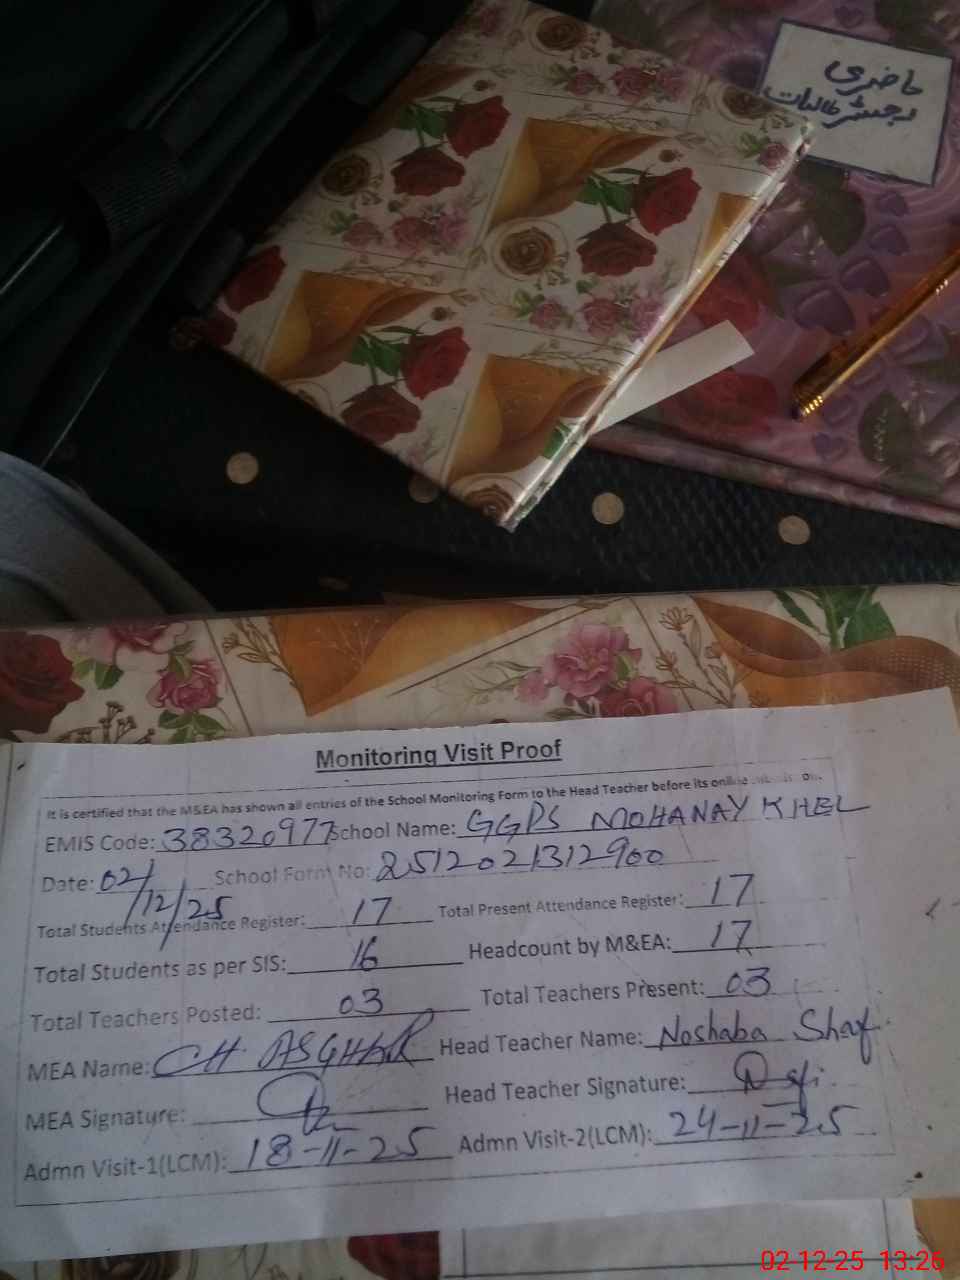 حاضری
رجسٹر طالبات
Monitoring Visit Proof
It is certified that the M&EA has shown all entries of the School Monitoring Form to the Head Teacher before its online
EMIS Code: 38320977 School Name: GGPS MOHANAY KHEL
Date: 02/12/25 School Form No: 2512021312900
Total Students Attendance Register: 17 Total Present Attendance Register: 17
Total Students as per SIS: 16 Headcount by M&EA: 17
Total Teachers Posted: 03 Total Teachers Present: 03
MEA Name: CH. ASGHAR Head Teacher Name: Noshaba Shaf
MEA Signature: Head Teacher Signature:
Admn Visit-1(LCM): 18-11-25 Admn Visit-2(LCM): 24-11-25
02-12-25 13:26